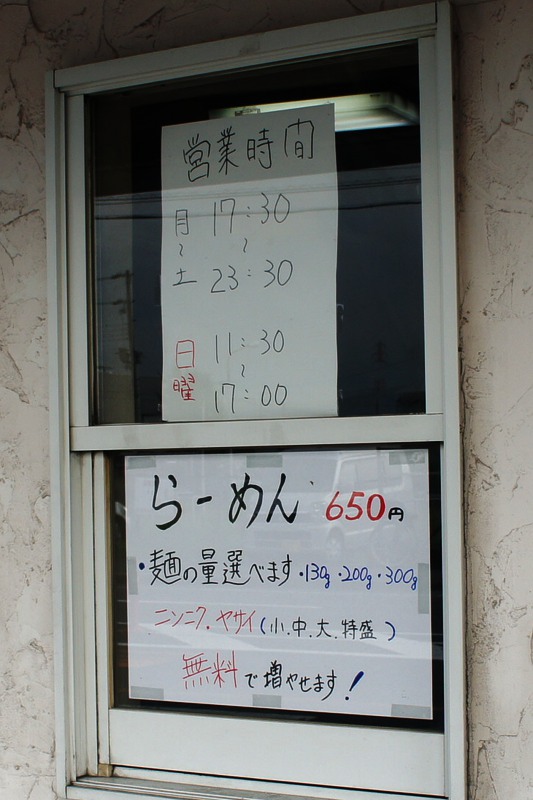 営業時間
月 17:30
~ ~
土 23:30
日 11:30
~
曜 17:00
らーめん 650円
・麺の量選べます・130g・200g・300g
ニンニク.ヤサイ(小.中.大.特盛)
無料で増やせます!